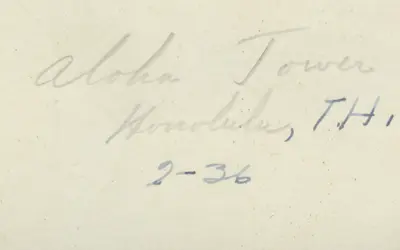 Aloha Tower
Honolulu, T.H.
2-36